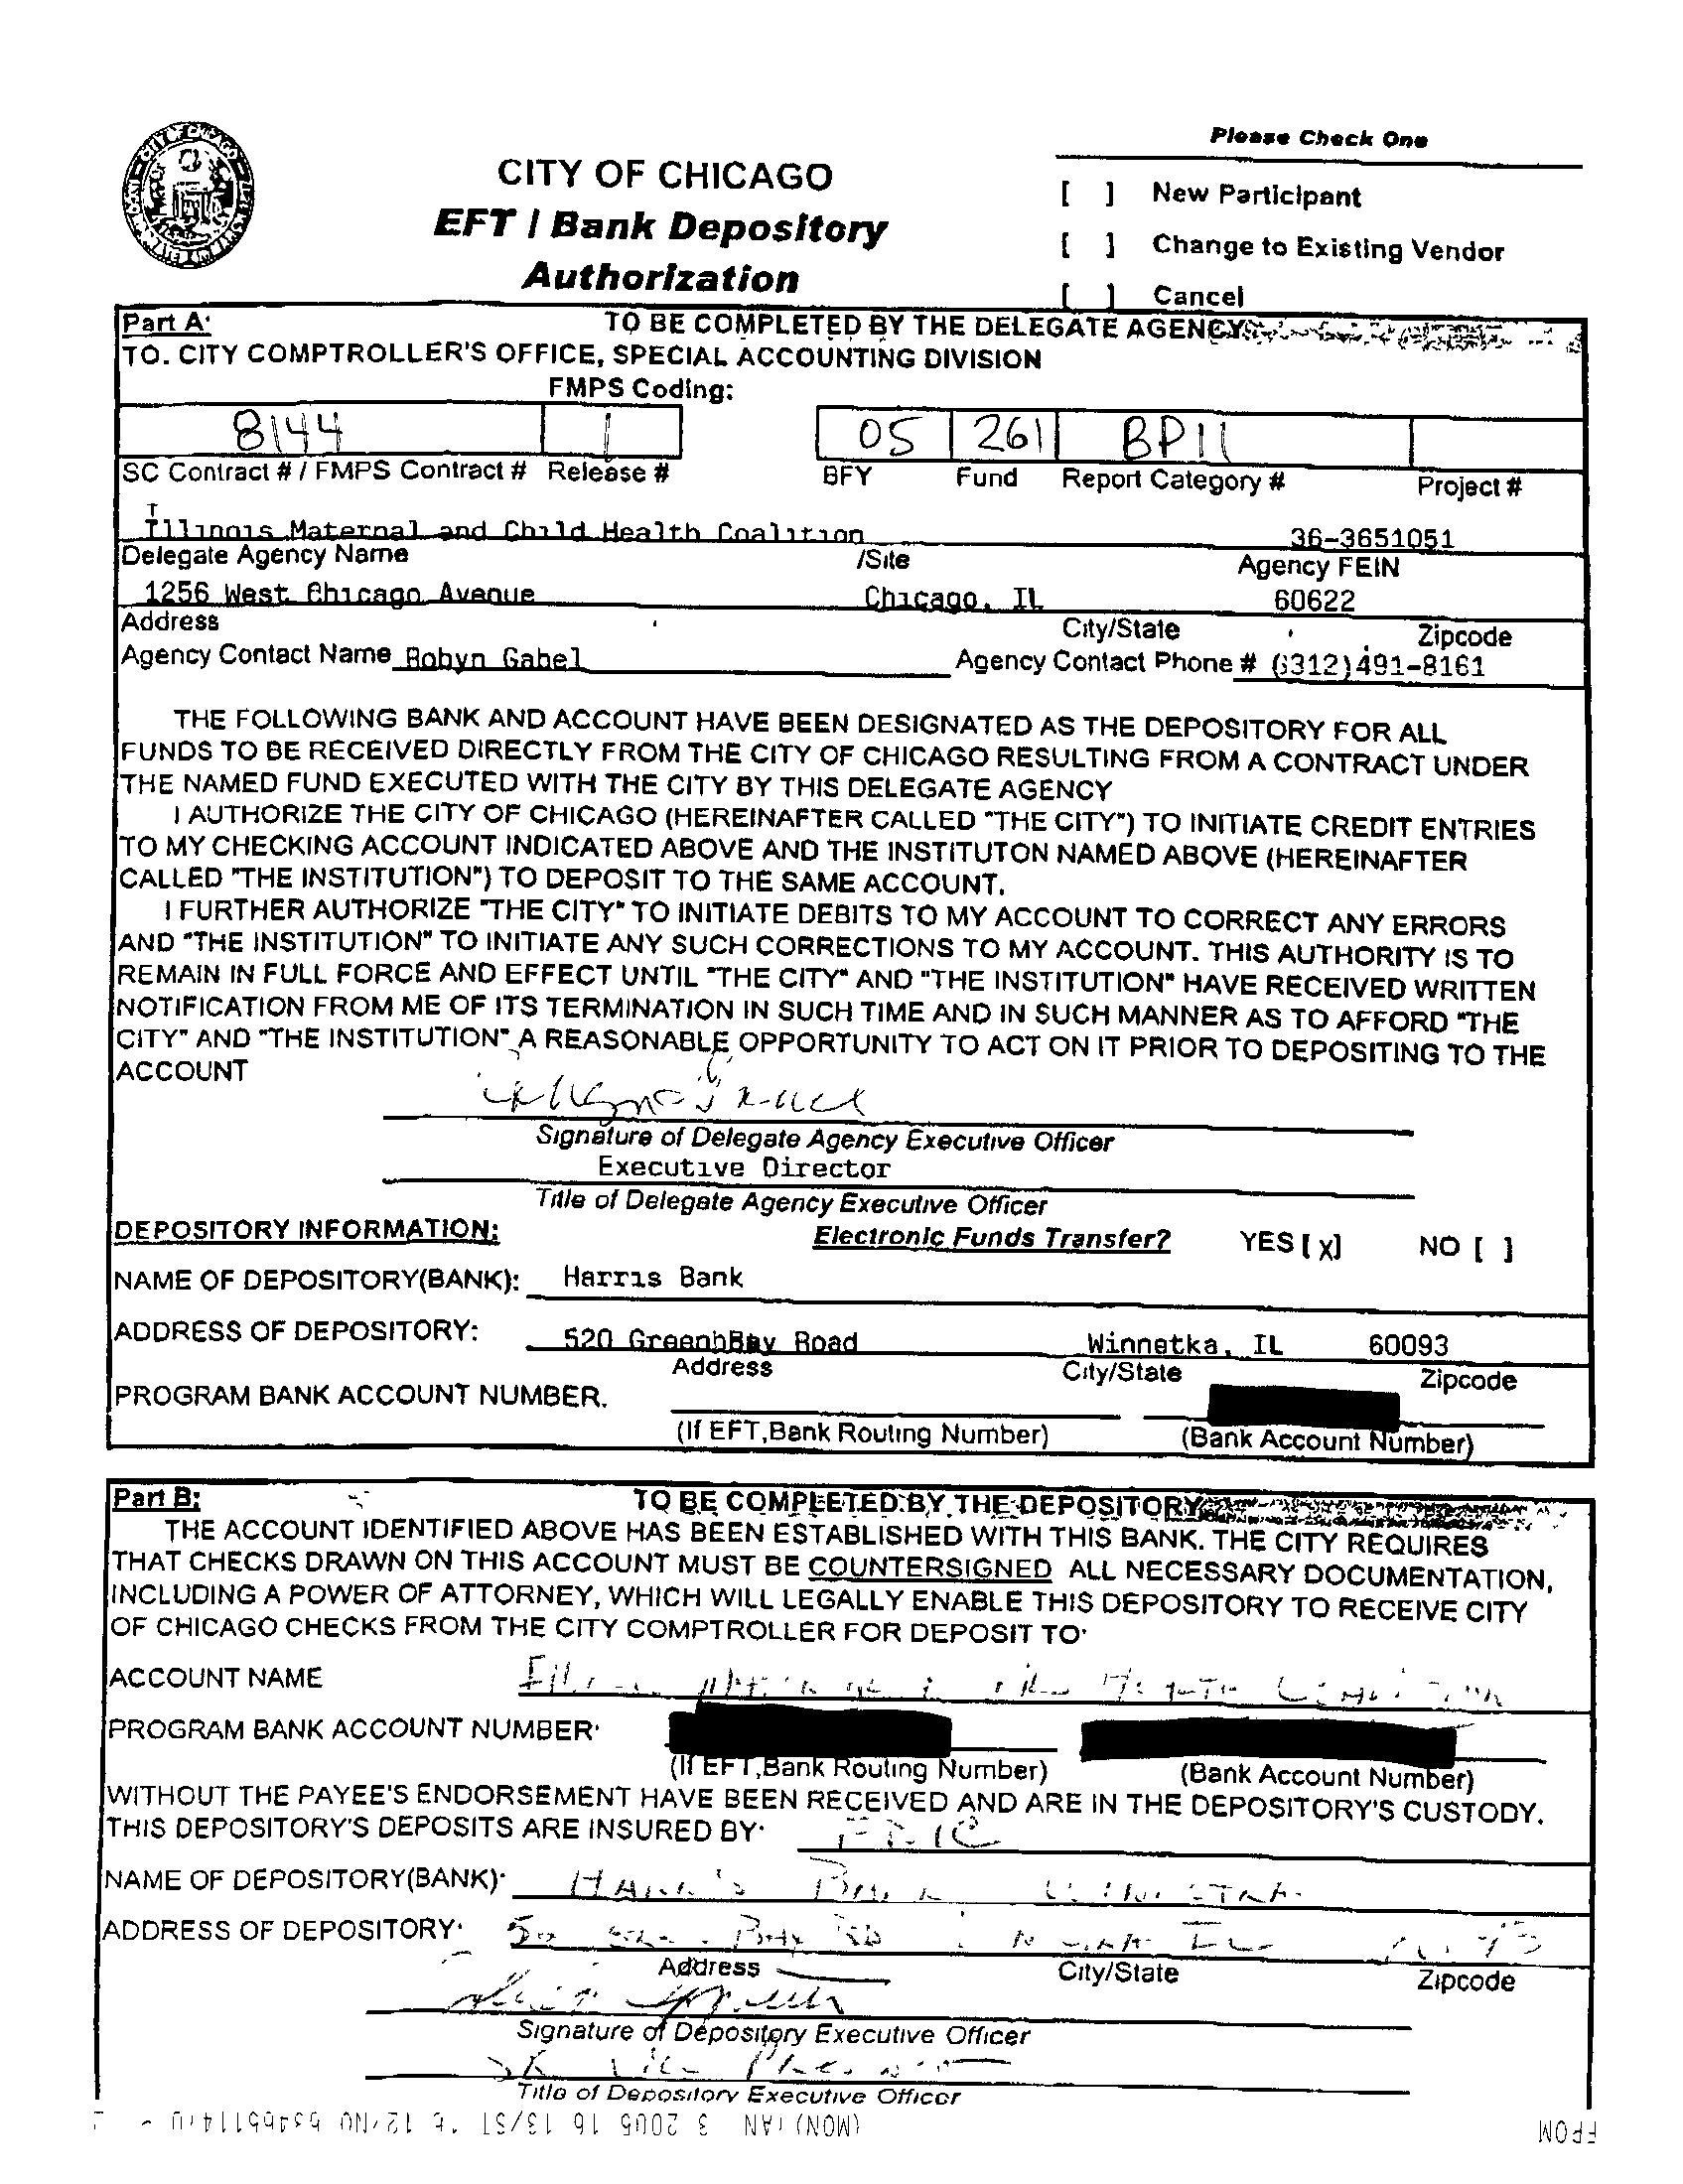 Please Check One
CITY OF CHICAGO
EFT / Bank Depository
Authorization
[ ] New Participant
[ ] Change to Existing Vendor
[ ] Cancel
Part A:
TO BE COMPLETED BY THE DELEGATE AGENCY
TO. CITY COMPTROLLER'S OFFICE, SPECIAL ACCOUNTING DIVISION
FMPS Coding:
8144 1 05 261 BP11
SC Contract # / FMPS Contract # Release # BFY Fund Report Category # Project #
Illinois Maternal and Child Health Coalition 36-3651051
Delegate Agency Name /Site Agency FEIN
1256 West Chicago Avenue Chicago, IL 60622
Address City/State Zipcode
Agency Contact Name Robyn Gabel Agency Contact Phone # (312)491-8161
THE FOLLOWING BANK AND ACCOUNT HAVE BEEN DESIGNATED AS THE DEPOSITORY FOR ALL
FUNDS TO BE RECEIVED DIRECTLY FROM THE CITY OF CHICAGO RESULTING FROM A CONTRACT UNDER
THE NAMED FUND EXECUTED WITH THE CITY BY THIS DELEGATE AGENCY
I AUTHORIZE THE CITY OF CHICAGO (HEREINAFTER CALLED "THE CITY") TO INITIATE CREDIT ENTRIES
TO MY CHECKING ACCOUNT INDICATED ABOVE AND THE INSTITUTON NAMED ABOVE (HEREINAFTER
CALLED "THE INSTITUTION") TO DEPOSIT TO THE SAME ACCOUNT.
I FURTHER AUTHORIZE "THE CITY" TO INITIATE DEBITS TO MY ACCOUNT TO CORRECT ANY ERRORS
AND "THE INSTITUTION" TO INITIATE ANY SUCH CORRECTIONS TO MY ACCOUNT. THIS AUTHORITY IS TO
REMAIN IN FULL FORCE AND EFFECT UNTIL "THE CITY" AND "THE INSTITUTION" HAVE RECEIVED WRITTEN
NOTIFICATION FROM ME OF ITS TERMINATION IN SUCH TIME AND IN SUCH MANNER AS TO AFFORD "THE
CITY" AND "THE INSTITUTION" A REASONABLE OPPORTUNITY TO ACT ON IT PRIOR TO DEPOSITING TO THE
ACCOUNT
Signature of Delegate Agency Executive Officer
Executive Director
Title of Delegate Agency Executive Officer
DEPOSITORY INFORMATION: Electronic Funds Transfer? YES [ X] NO [ ]
NAME OF DEPOSITORY(BANK): Harris Bank
ADDRESS OF DEPOSITORY: 520 GreenhBay Road Winnetka, IL 60093
Address City/State Zipcode
PROGRAM BANK ACCOUNT NUMBER.
(If EFT,Bank Routing Number) (Bank Account Number)
Part B:
TO BE COMPLETED BY THE DEPOSITORY
THE ACCOUNT IDENTIFIED ABOVE HAS BEEN ESTABLISHED WITH THIS BANK. THE CITY REQUIRES
THAT CHECKS DRAWN ON THIS ACCOUNT MUST BE COUNTERSIGNED ALL NECESSARY DOCUMENTATION,
INCLUDING A POWER OF ATTORNEY, WHICH WILL LEGALLY ENABLE THIS DEPOSITORY TO RECEIVE CITY
OF CHICAGO CHECKS FROM THE CITY COMPTROLLER FOR DEPOSIT TO'
ACCOUNT NAME
PROGRAM BANK ACCOUNT NUMBER'
(If EFT,Bank Routing Number) (Bank Account Number)
WITHOUT THE PAYEE'S ENDORSEMENT HAVE BEEN RECEIVED AND ARE IN THE DEPOSITORY'S CUSTODY.
THIS DEPOSITORY'S DEPOSITS ARE INSURED BY' FDIC
NAME OF DEPOSITORY(BANK)' Harris Bank
ADDRESS OF DEPOSITORY'
Address City/State Zipcode
Signature of Depository Executive Officer
Title of Depository Executive Officer
FROM (MON) JAN 3 2005 16 13/ST